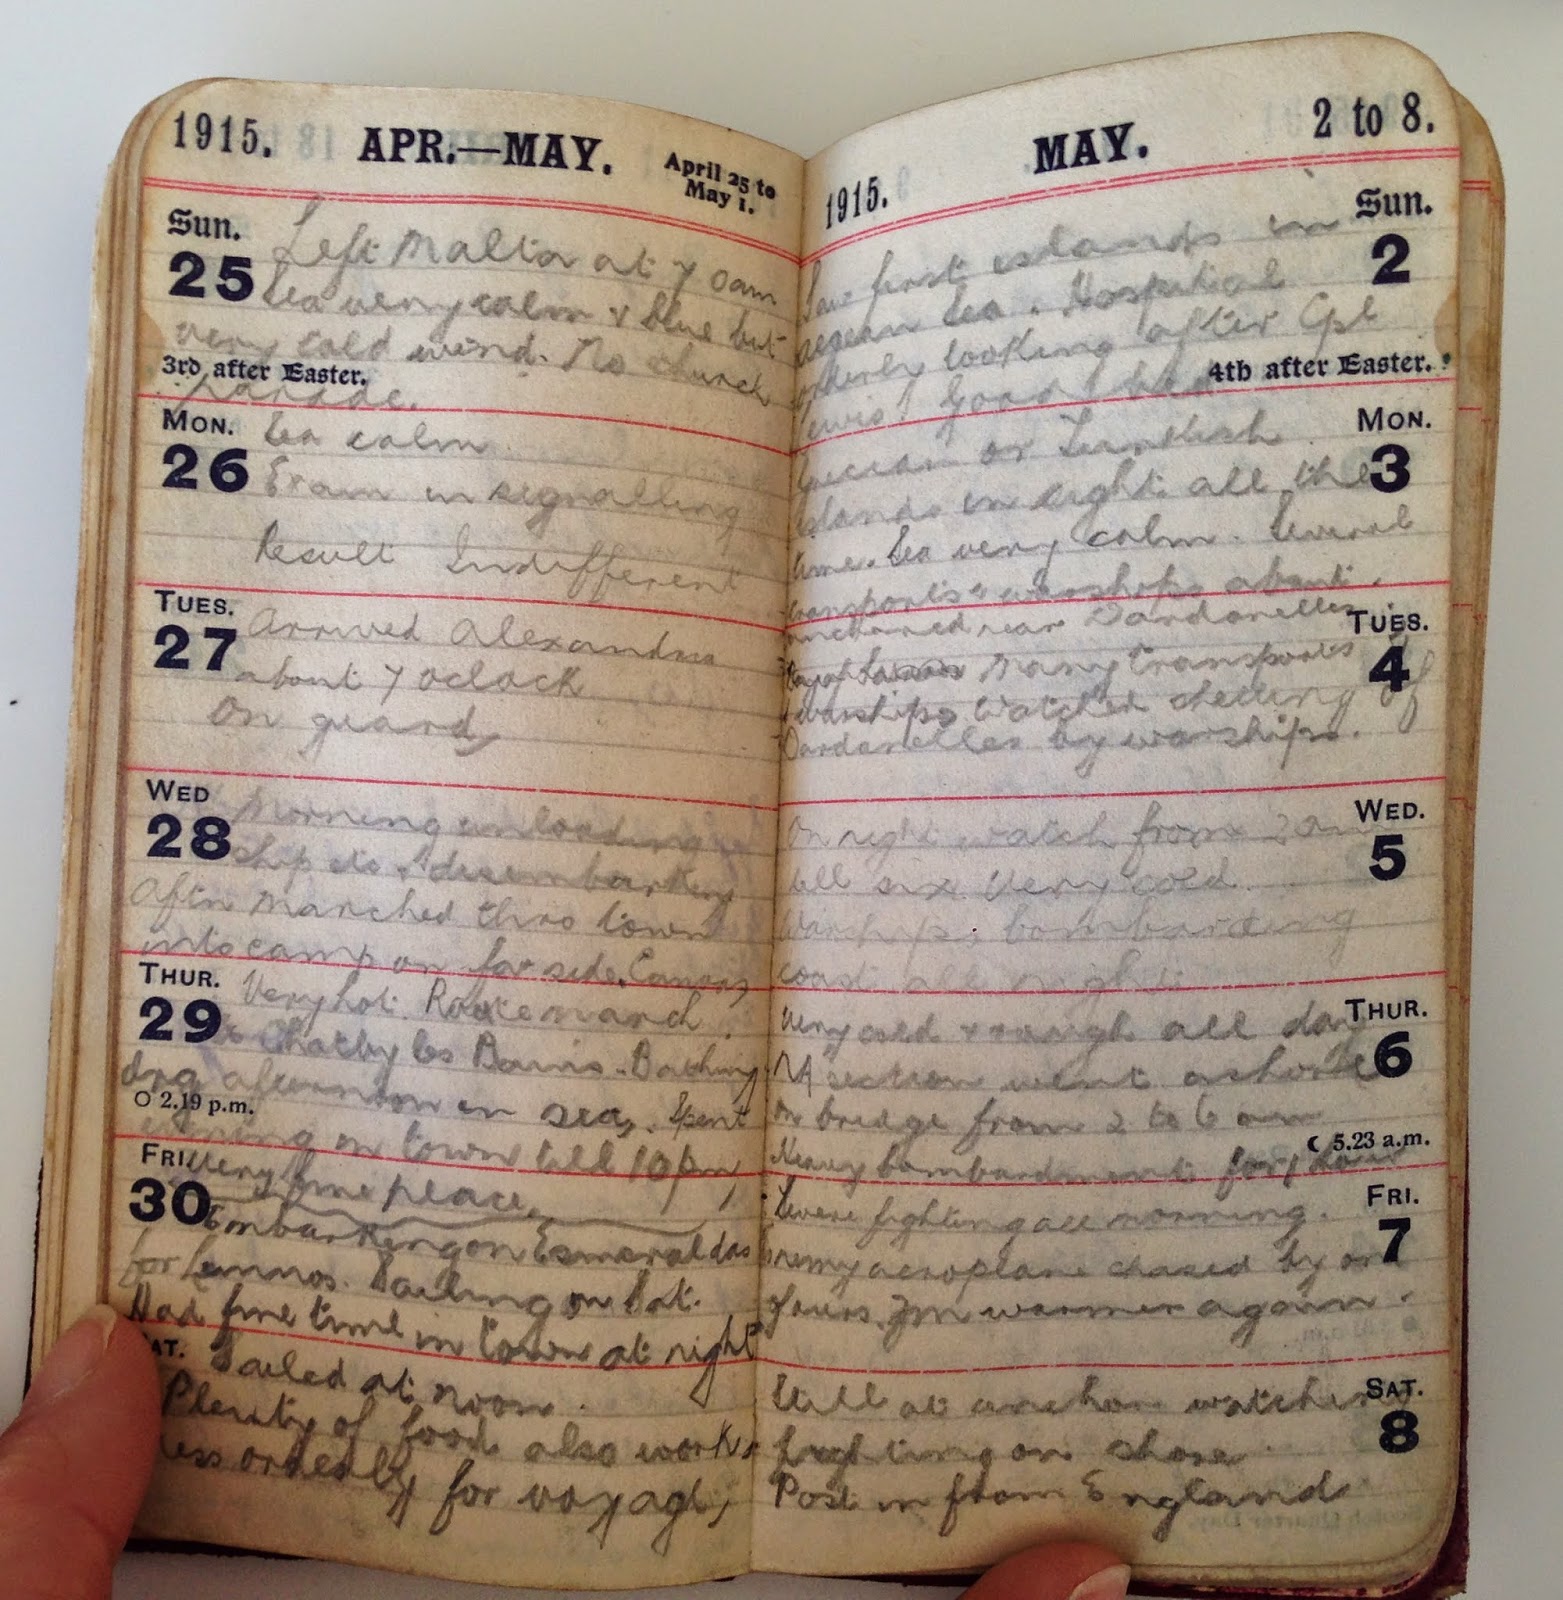 1915. APR.—MAY. April 25 to May 1.
Sun. 25
Left Malta at 7 0am
Sea very calm & blue but
very cold wind. No church
3rd after Easter.
parade.
MON. 26
Sea calm
Exam in signalling
Result Indifferent
TUES. 27
Arrived Alexandria
about 7 oclock
On guard
WED 28
Morning unloading
ship etc & disembarking
Aftn marched thro town
into camp on far side. Canvas
THUR. 29
Very hot. Route march
to Chatby les Bains. Bathing
drg afternoon in sea. Spent
O 2.19 p.m.
evening in town till 10 pm
FRI. 30
Very fine place
Embarking on Esmeraldas
for Lemnos. Sailing on Sat.
Had fine time in town at night
AT.
Sailed at noon.
Plenty of food also work
ess orderly for voyage
1915. MAY. 2 to 8.
Sun. 2
Saw first islands in
aegean Sea. Hospital
orderly looking after Cpl
Lewis! Good bed
4th after Easter.
MON. 3
Grecian or Turkish
islands in sight all the
time. Sea very calm. Several
transports & warships about.
TUES. 4
anchored near Dardanelles
Many transports &
warships Watched shelling of
Dardanelles by warships.
WED. 5
On night watch from 2 am
till six Very cold
Warships bombarding
coast all night
THUR. 6
Very cold & rough all day
A section went ashore
on bridge from 2 to 6 am
☾ 5.23 a.m.
Heavy bombardment for 1 hour
FRI. 7
Severe fighting all morning.
Enemy aeroplane chased by one
of ours. I'm warmer again.
SAT. 8
Still at anchor watching
fighting on shore
Post in from England